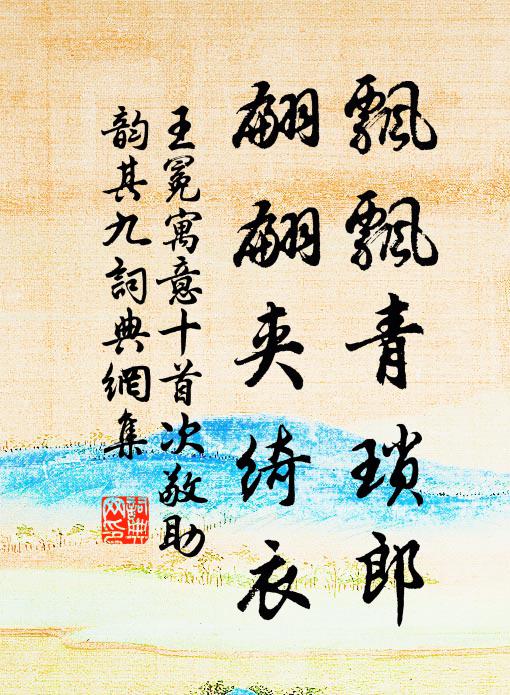 飄飄青瑣郎
翩翩夾綺衣
王冕寓意十首次敬助
韵其九詞典網集